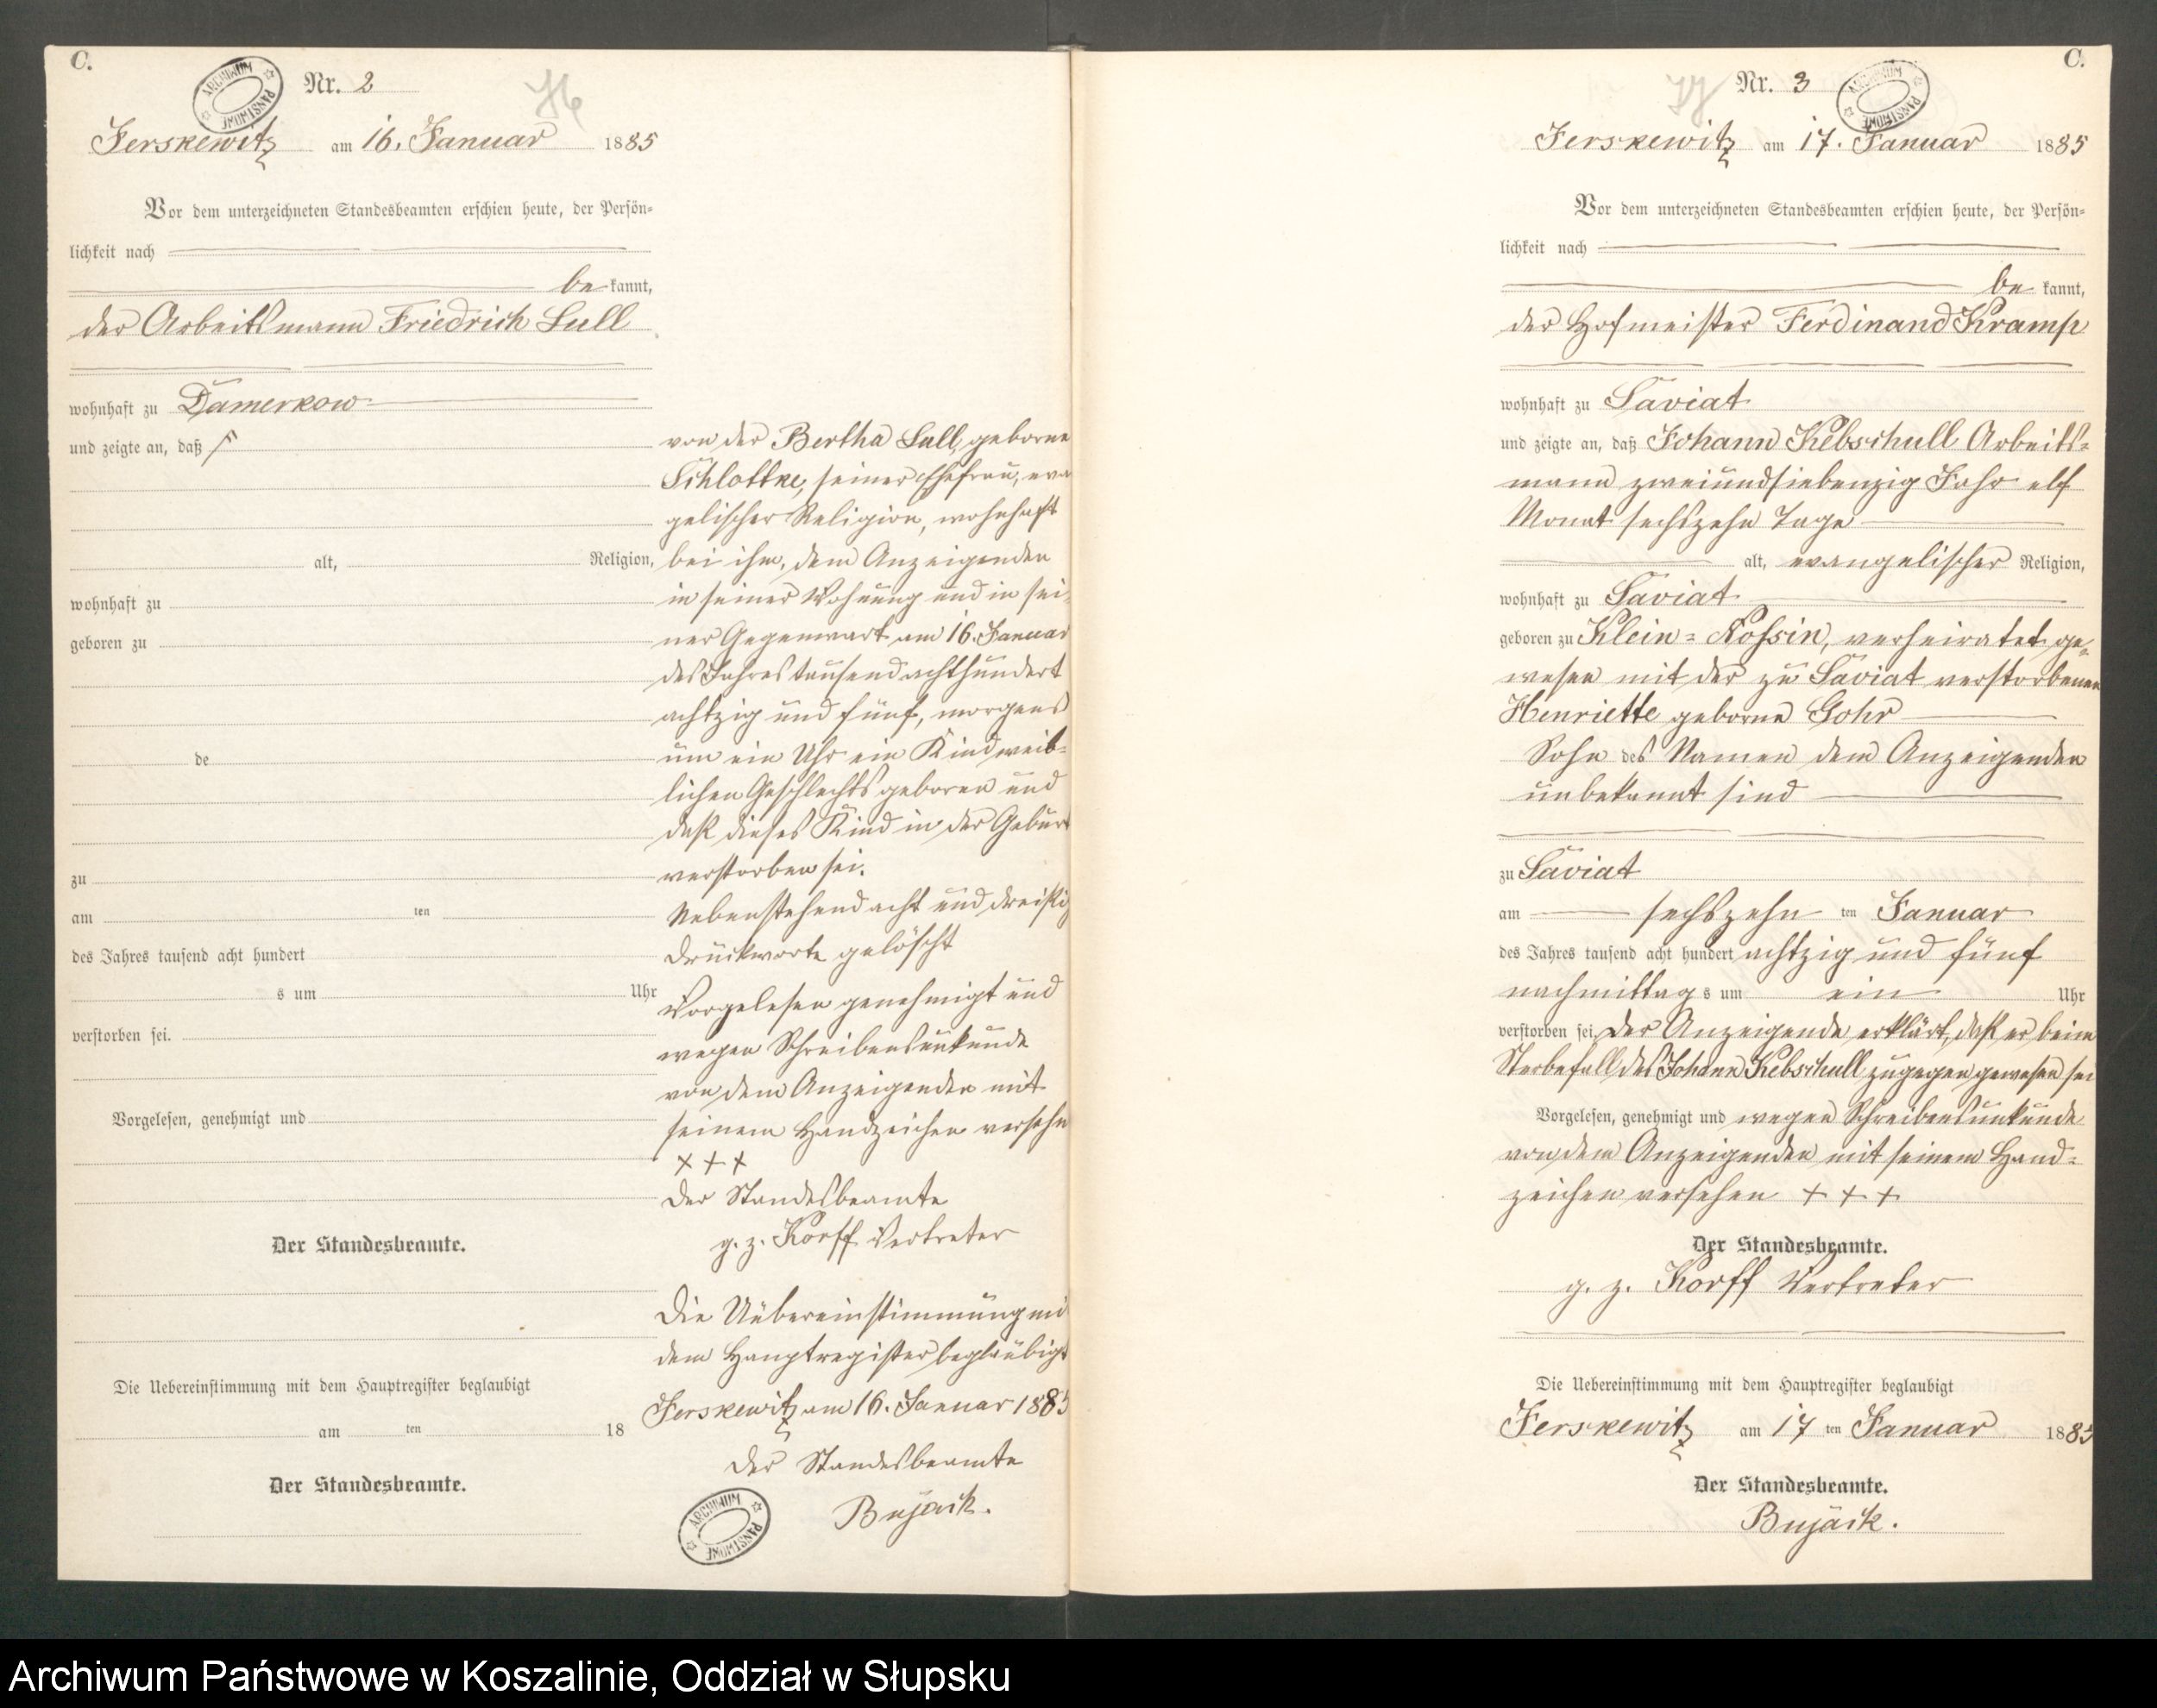 C.
Nr. 2
ARCHIWUM PAŃSTWOWE
Jerskewitz am 16. Januar 1885
Vor dem unterzeichneten Standesbeamten erschien heute, der Persön=
lichkeit nach
be kannt,
der Arbeitsmann Friedrich Lull
wohnhaft zu Damerkow
und zeigte an, daß
alt, Religion,
wohnhaft zu
geboren zu
de
zu
am ten
des Jahres tausend acht hundert
s um Uhr
verstorben sei.
Vorgelesen, genehmigt und
Der Standesbeamte.
Die Uebereinstimmung mit dem Hauptregister beglaubigt
am ten 18
Der Standesbeamte.
von der Bertha Lull, geborne
Schlottke, seiner Ehefrau, evan
gelischer Religion, wohnhaft
bei ihm, dem Anzeigenden
in seiner Wohnung und in sei
ner Gegenwart am 16. Januar
des Jahres tausend achthundert
achtzig und fünf, morgens
um ein Uhr ein Kind weib=
lichen Geschlechts geboren und
daß dieses Kind in der Geburt
verstorben sei.
Nebenstehend acht und dreißig
Druckworte gelöscht
Vorgelesen genehmigt und
wegen Schreibensunkunde
von dem Anzeigenden mit
seinem Handzeichen versehn
+ + +
Der Standesbeamte
g. z. Korff Vertreter
Die Uebereinstimmung mit
dem Hauptregister beglaubigt
Jerskewitz am 16. Januar 1885
Der Standesbeamte
Bujack.
ARCHIWUM PAŃSTWOWE
C.
Nr. 3
ARCHIWUM PAŃSTWOWE
Jerskewitz am 17. Januar 1885
Vor dem unterzeichneten Standesbeamten erschien heute, der Persön=
lichkeit nach
be kannt,
der Hofmeister Ferdinand Kramp
wohnhaft zu Saviat
und zeigte an, daß Johann Kebschull Arbeits=
mann zweiundsiebenzig Jahr elf
Monat sechszehn Tage
alt, evangelischer Religion,
wohnhaft zu Saviat
geboren zu Klein=Nossin, verheiratet ge=
wesen mit der zu Saviat verstorbenen
Henriette geborne Gohr
Sohn des Namen dem Anzeigenden
unbekannt sind
zu Saviat
am sechszehn ten Januar
des Jahres tausend acht hundert achtzig und fünf
nachmittag s um ein Uhr
verstorben sei. Der Anzeigende erklärt, daß er beim
Sterbefall des Johann Kebschull zugegen gewesen sei
Vorgelesen, genehmigt und wegen Schreibensunkunde
von dem Anzeigenden mit seinem Hand=
zeichen versehen + + +
Der Standesbeamte.
g. z. Korff Vertreter
Die Uebereinstimmung mit dem Hauptregister beglaubigt
Jerskewitz am 17 ten Januar 1885
Der Standesbeamte.
Bujack.
Archiwum Państwowe w Koszalinie, Oddział w Słupsku